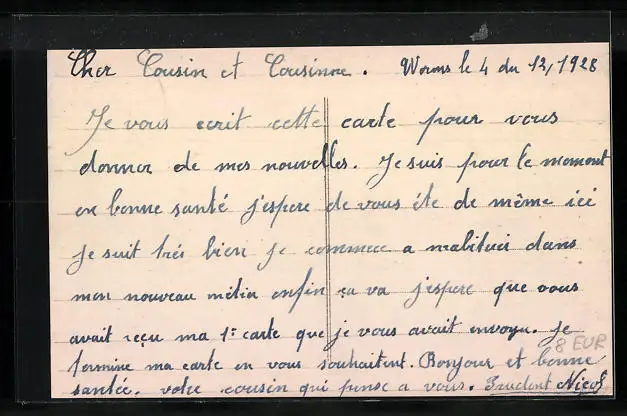 Cher Cousin et Cousinne. Worms le 4 du 12/1928
Je vous ecrit cette carte pour vous
donner de mes nouvelles. Je suis pour le moment
en bonne santé j'espere de vous éte de même ici
je suit trés bien je commece a mabituer dans
mon nouveau métier enfin ça va j'espere que vous
avait reçu ma 1er carte que je vous avait envoyu. Je
termine ma carte en vous souhaitent. Bonjour et bonne
santée. votre cousin qui pense a vous. Prudent
8 EUR